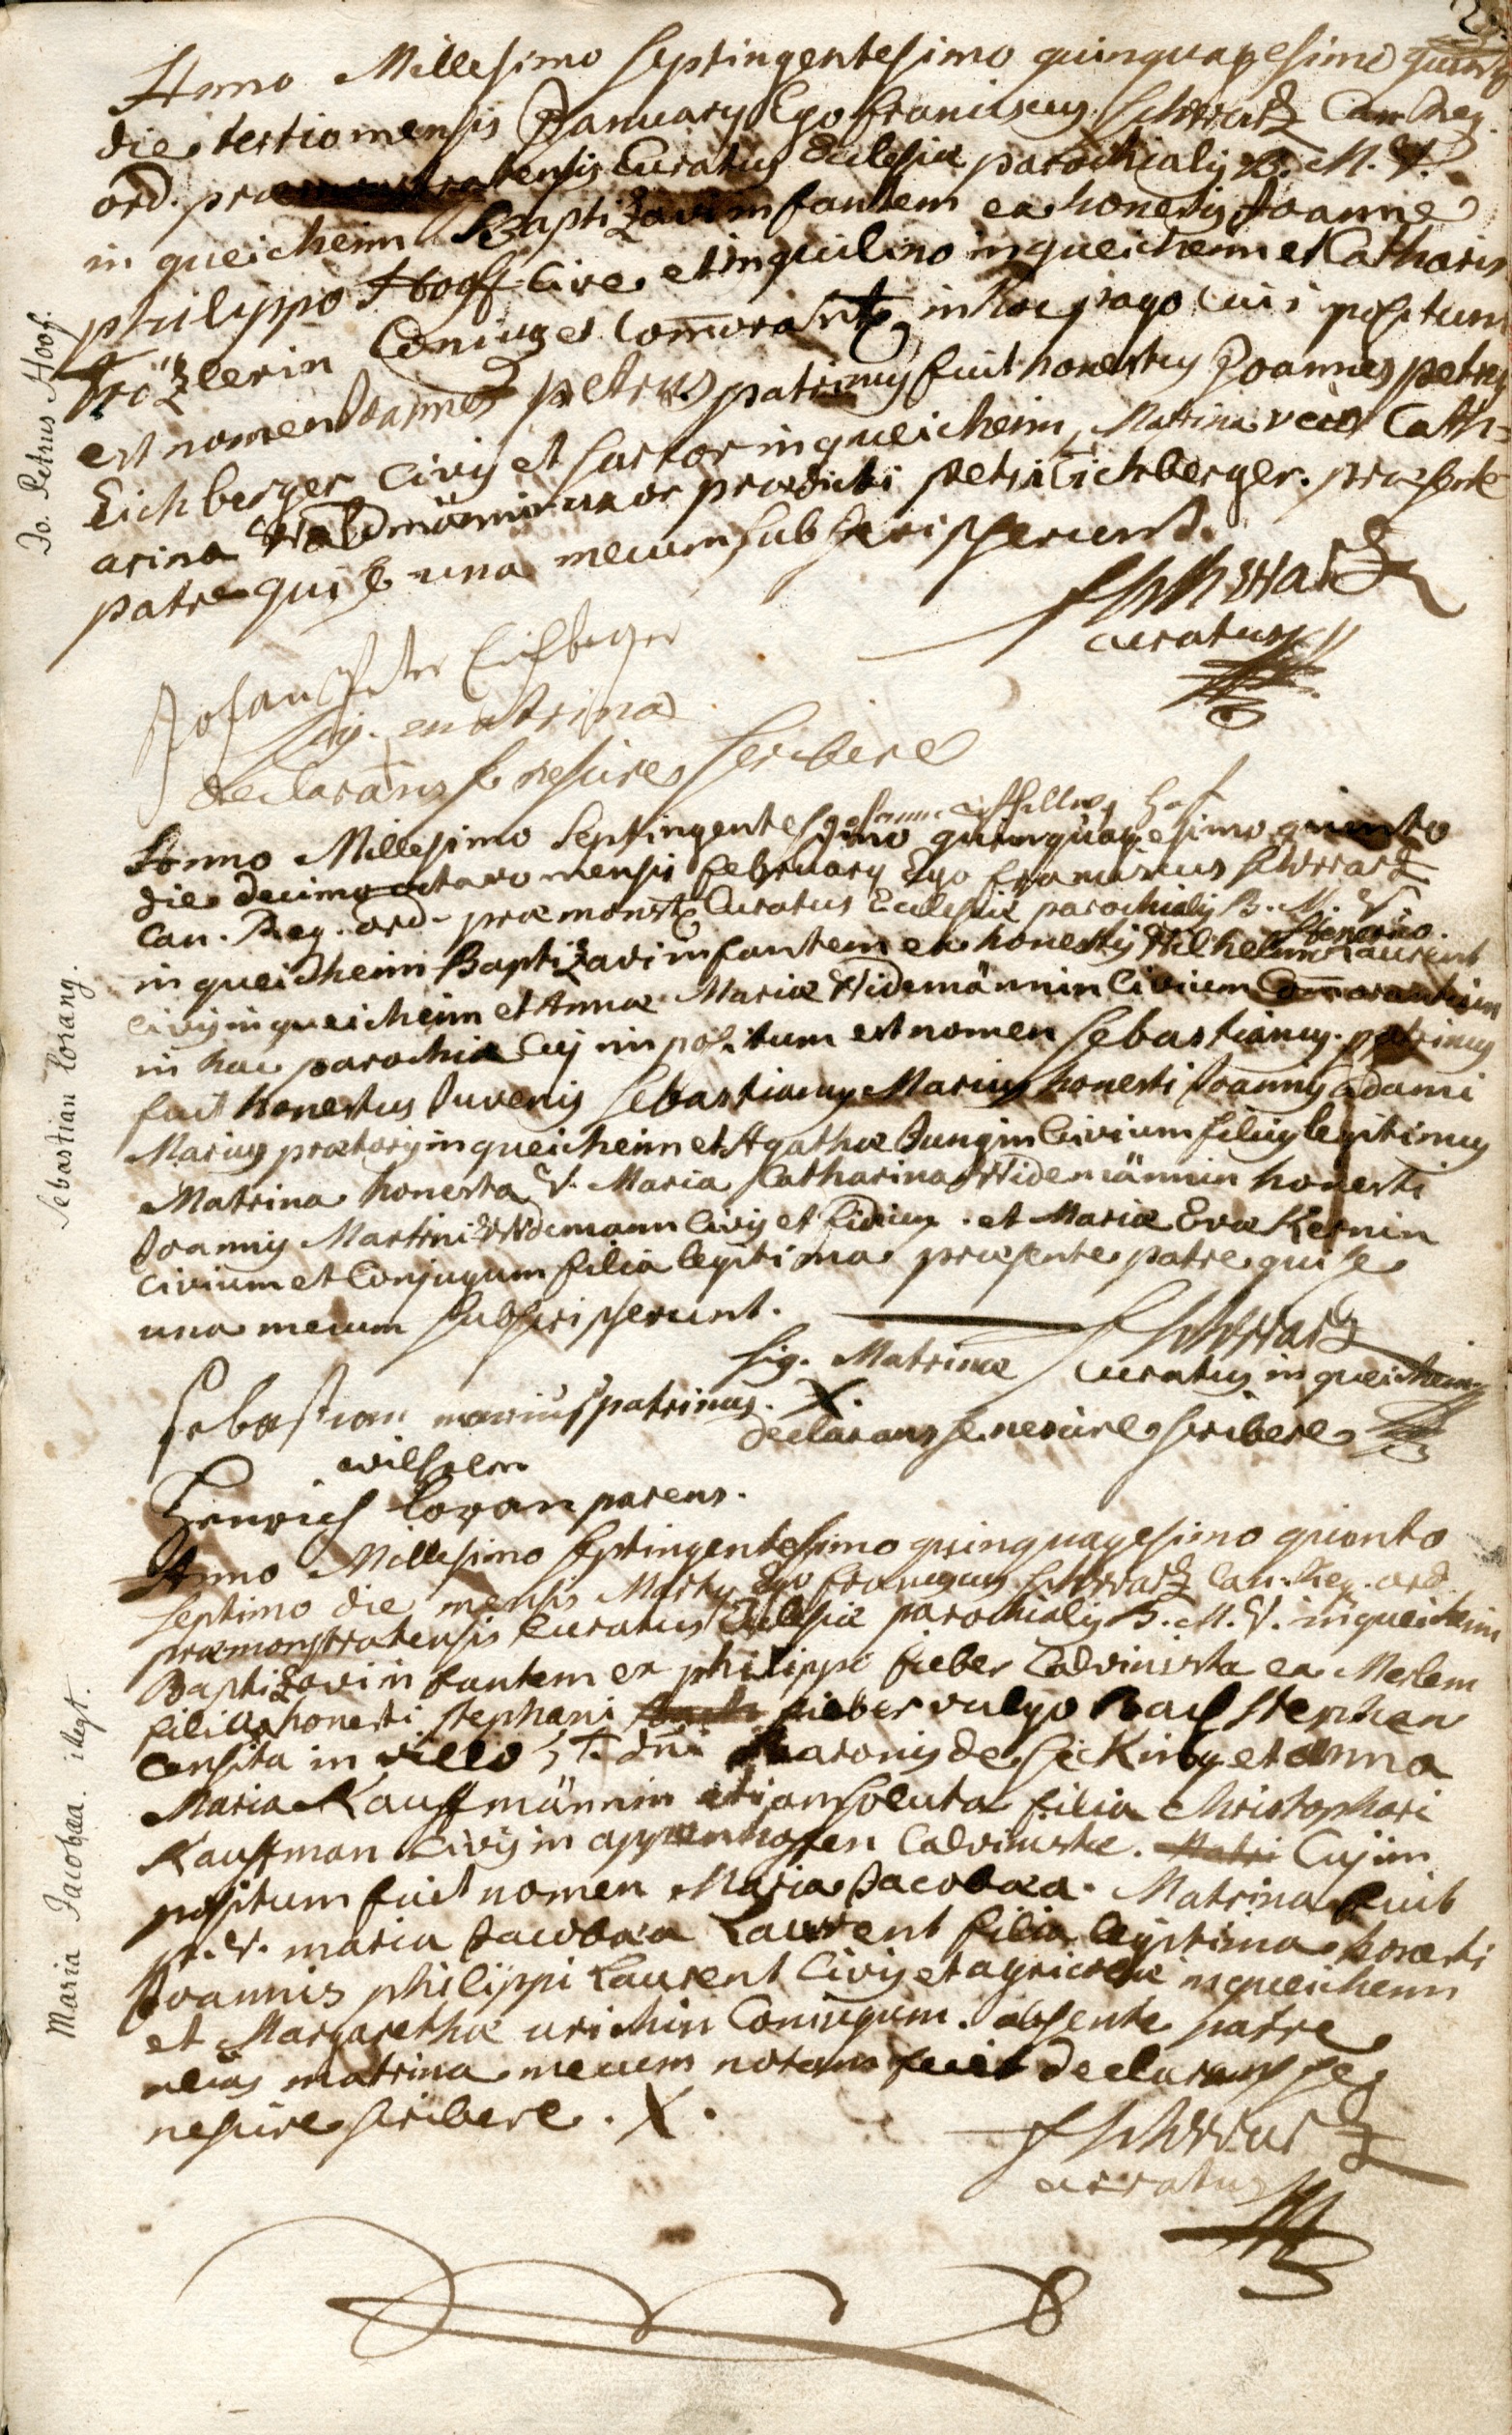 Jo. Petrus Hoof.
Anno Millesimo Septingentesimo quinquagesimo
die tertio mensis January Ego franciscus Schwartz Can Reg.
ord. præmonstratensis Curatus Ecclesiæ parochialis B. M. V.
in queichheim Baptizavi infantem ex honestis Joanne
philippo Hooff Cive et inquilino in queichheim et Catharin
Conjuges in hoc pago cui
est nomen Joannes petrus patrinus fuit honestus Joannes petrus
Eichberger Civis et sartor in queichheim, Matrina vero Cath=
arina Waldmännin uxor prædicti petri Eichberger. præsente
patre qui se una mecum subscripserunt.
Schwartz
curatus
Johan Peter Eichberger
Sig. matrina
declarans se nescire scribere
Anno Millesimo Septingentesimo quinquagesimo quinto
die decimo octavo mensis february Ego franciscus Schwartz
Can. Reg. ord. præmonst Curatus Ecclesiæ parochialis B. M. V.
Henrico.
in queichheim Baptizavi infantem ex honestis Wilhelmo Laurent
Civis in queichheim et Annæ Mariæ Widemännin Civium Commorantium
in hac parochia Cuj impositum est nomen Sebastianus. patrinus
fuit honestus Juvenis Sebastianus Marius honesti Joannis adami
Marius prætoris in queichheim et Agathæ Jungin Civium filius legitimus
Matrina honesta V. Maria Catharina Widemännin honesti
Joannis Martini Widemann Civis et . et Mariæ Evæ Kernin
Civium et Conjugum filia legitima præsente patre qui se
una mecum subscripserunt.
Schwartz
Sig. Matrinæ curatus in queichheim
Sebastian marius patrinus. X.
declarans se nescire scribere
wilhelm
Henrich loran parens.
Sebastian Lorang.
Anno Millesimo Septingentesimo quinquagesimo quinto
septimo die mensis Marty Ego franciscus Schwartz Can. Reg. ord
præmonstratensis Curatus Ecclesiæ parochialis B. M. V. in queichheim
Baptizavi infantem ex philippo fieber Calvinista ex Merlem
filius honesti stephani fieber vulgo Bach stephan
Censita in Baronis de Sicking et Anna
Maria Kauffmännin etiam soluta filia Christophori
Kauffman Civis in appenhoffen Calvinistæ. Cuj im
positum fuit nomen Maria Jacobæa. Matrina fuit
p. V. maria Jacobæa Laurent filia legitima honesti
Joannis philippi Laurent Civis et agricolæ in queichheim
et Margarethæ urichin Conjugum. absente patre
matrina mecum notam fecit declarans se
nescire scribere. X.
Schwartz
curatus
Maria Jacobæa. illegt.